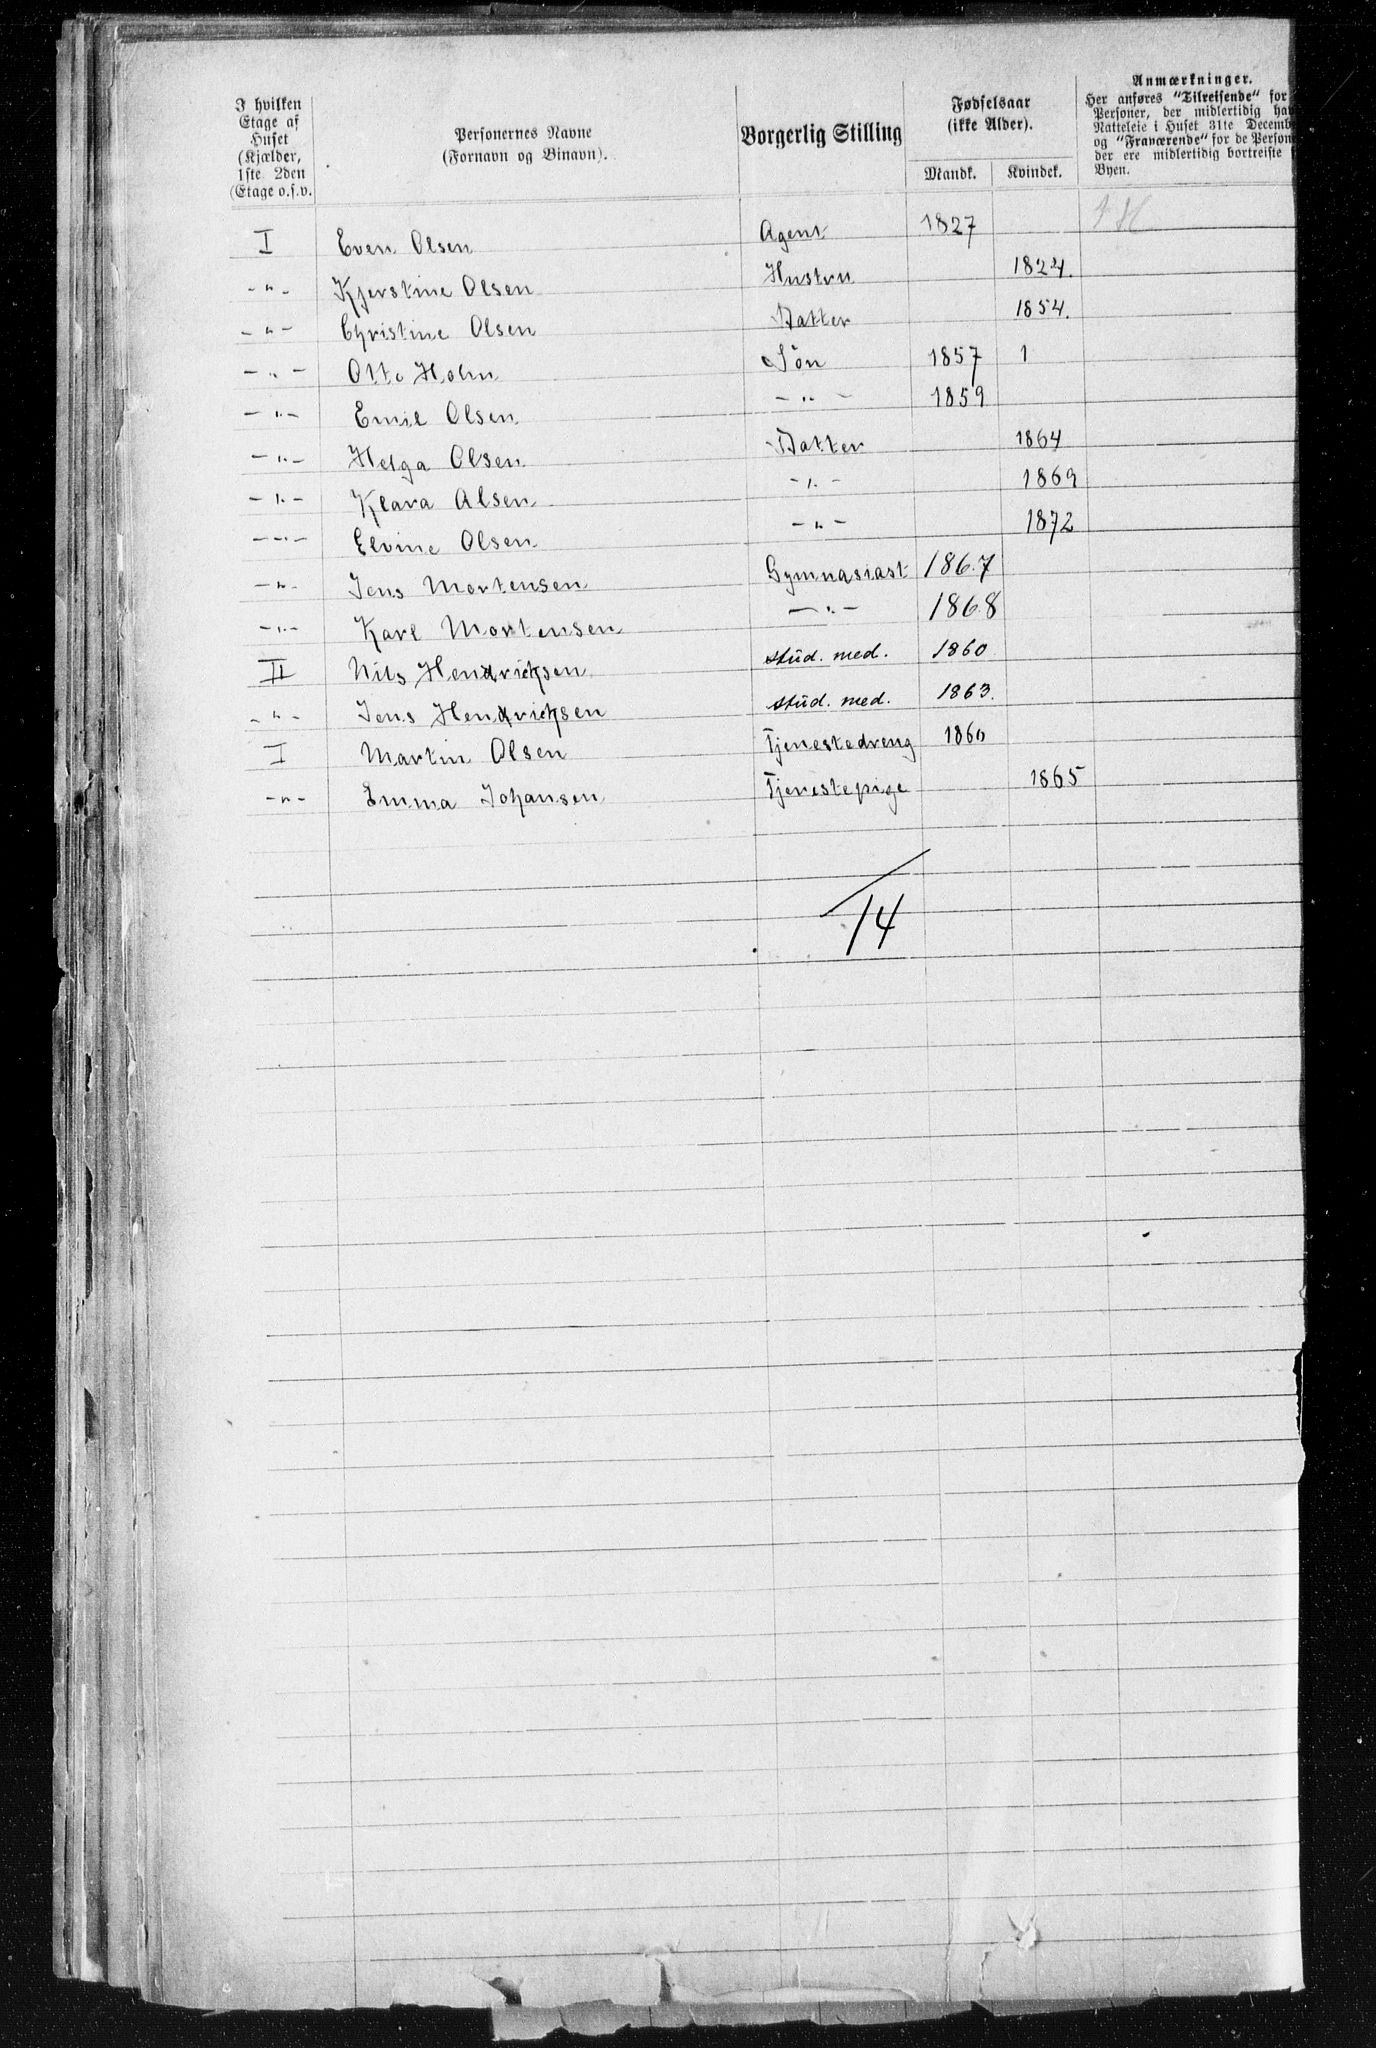 I hvilken Etage af Huset (Kjælder, 1ste 2den Etage o.s.v.
Personernes Navne (Fornavn og Binavn).
Borgerlig Stilling
Fødselsaar (ikke Alder).
Mandk. Kvindek.
Anmærkninger.
Her anføres "Tilreisende" for
Personer, der midlertidig hav
Natteleie i Huset 31te Decemb
og "Fraværende" for de Person
der ere midlertidig bortreiste
Byen.
I Even Olsen Agent 1827
-"- Kjerstine Olsen Hustru 1824.
-"- Christine Olsen Datter 1854.
-"- Otto Holm Søn 1857 1
-"- Emil Olsen -"- 1859
-"- Helga Olsen Datter 1864
-"- Klara Olsen -"- 1869
-"- Elvine Olsen -"- 1872
-"- Jens Mortensen Gymnasiast 1867
-"- Karl Mortensen -"- 1868
II Nils Hendricksen stud. med. 1860
-"- Jens Hendricksen stud. med. 1863.
I Martin Olsen Tjenestedreng 1860
-"- Emma Johansen Tjenestepige 1865
14